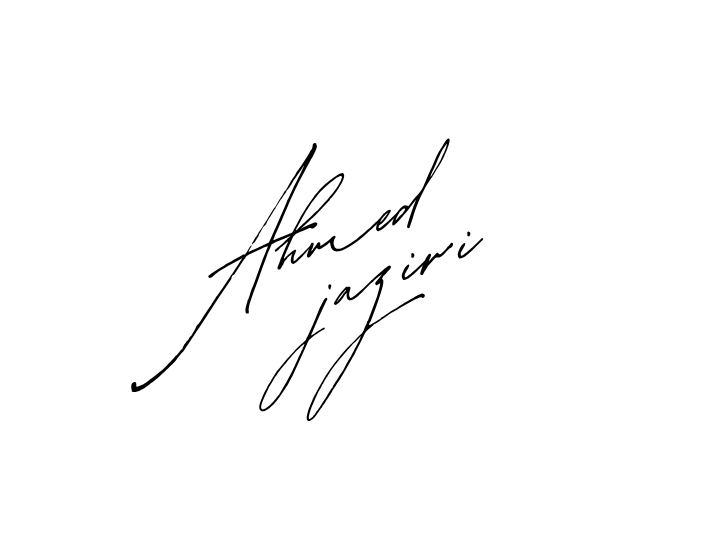 Ahmed
jaziri